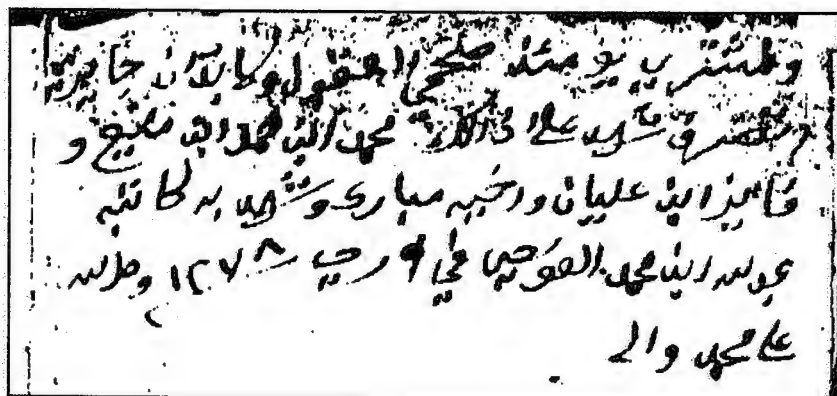 والمشتري يومئذ صحيحي العقول وكالابدان جايزين
التصرف شهد على اقرارهم محمد ابن حمد ابن مفيح و
فايز ابن عليان ورخيه مبارك وشهد به كاتبه
عبدالله ابن محمد العوجي في ٩ رجب سنة ١٢٧٨ وصلى الله
على محمد واله